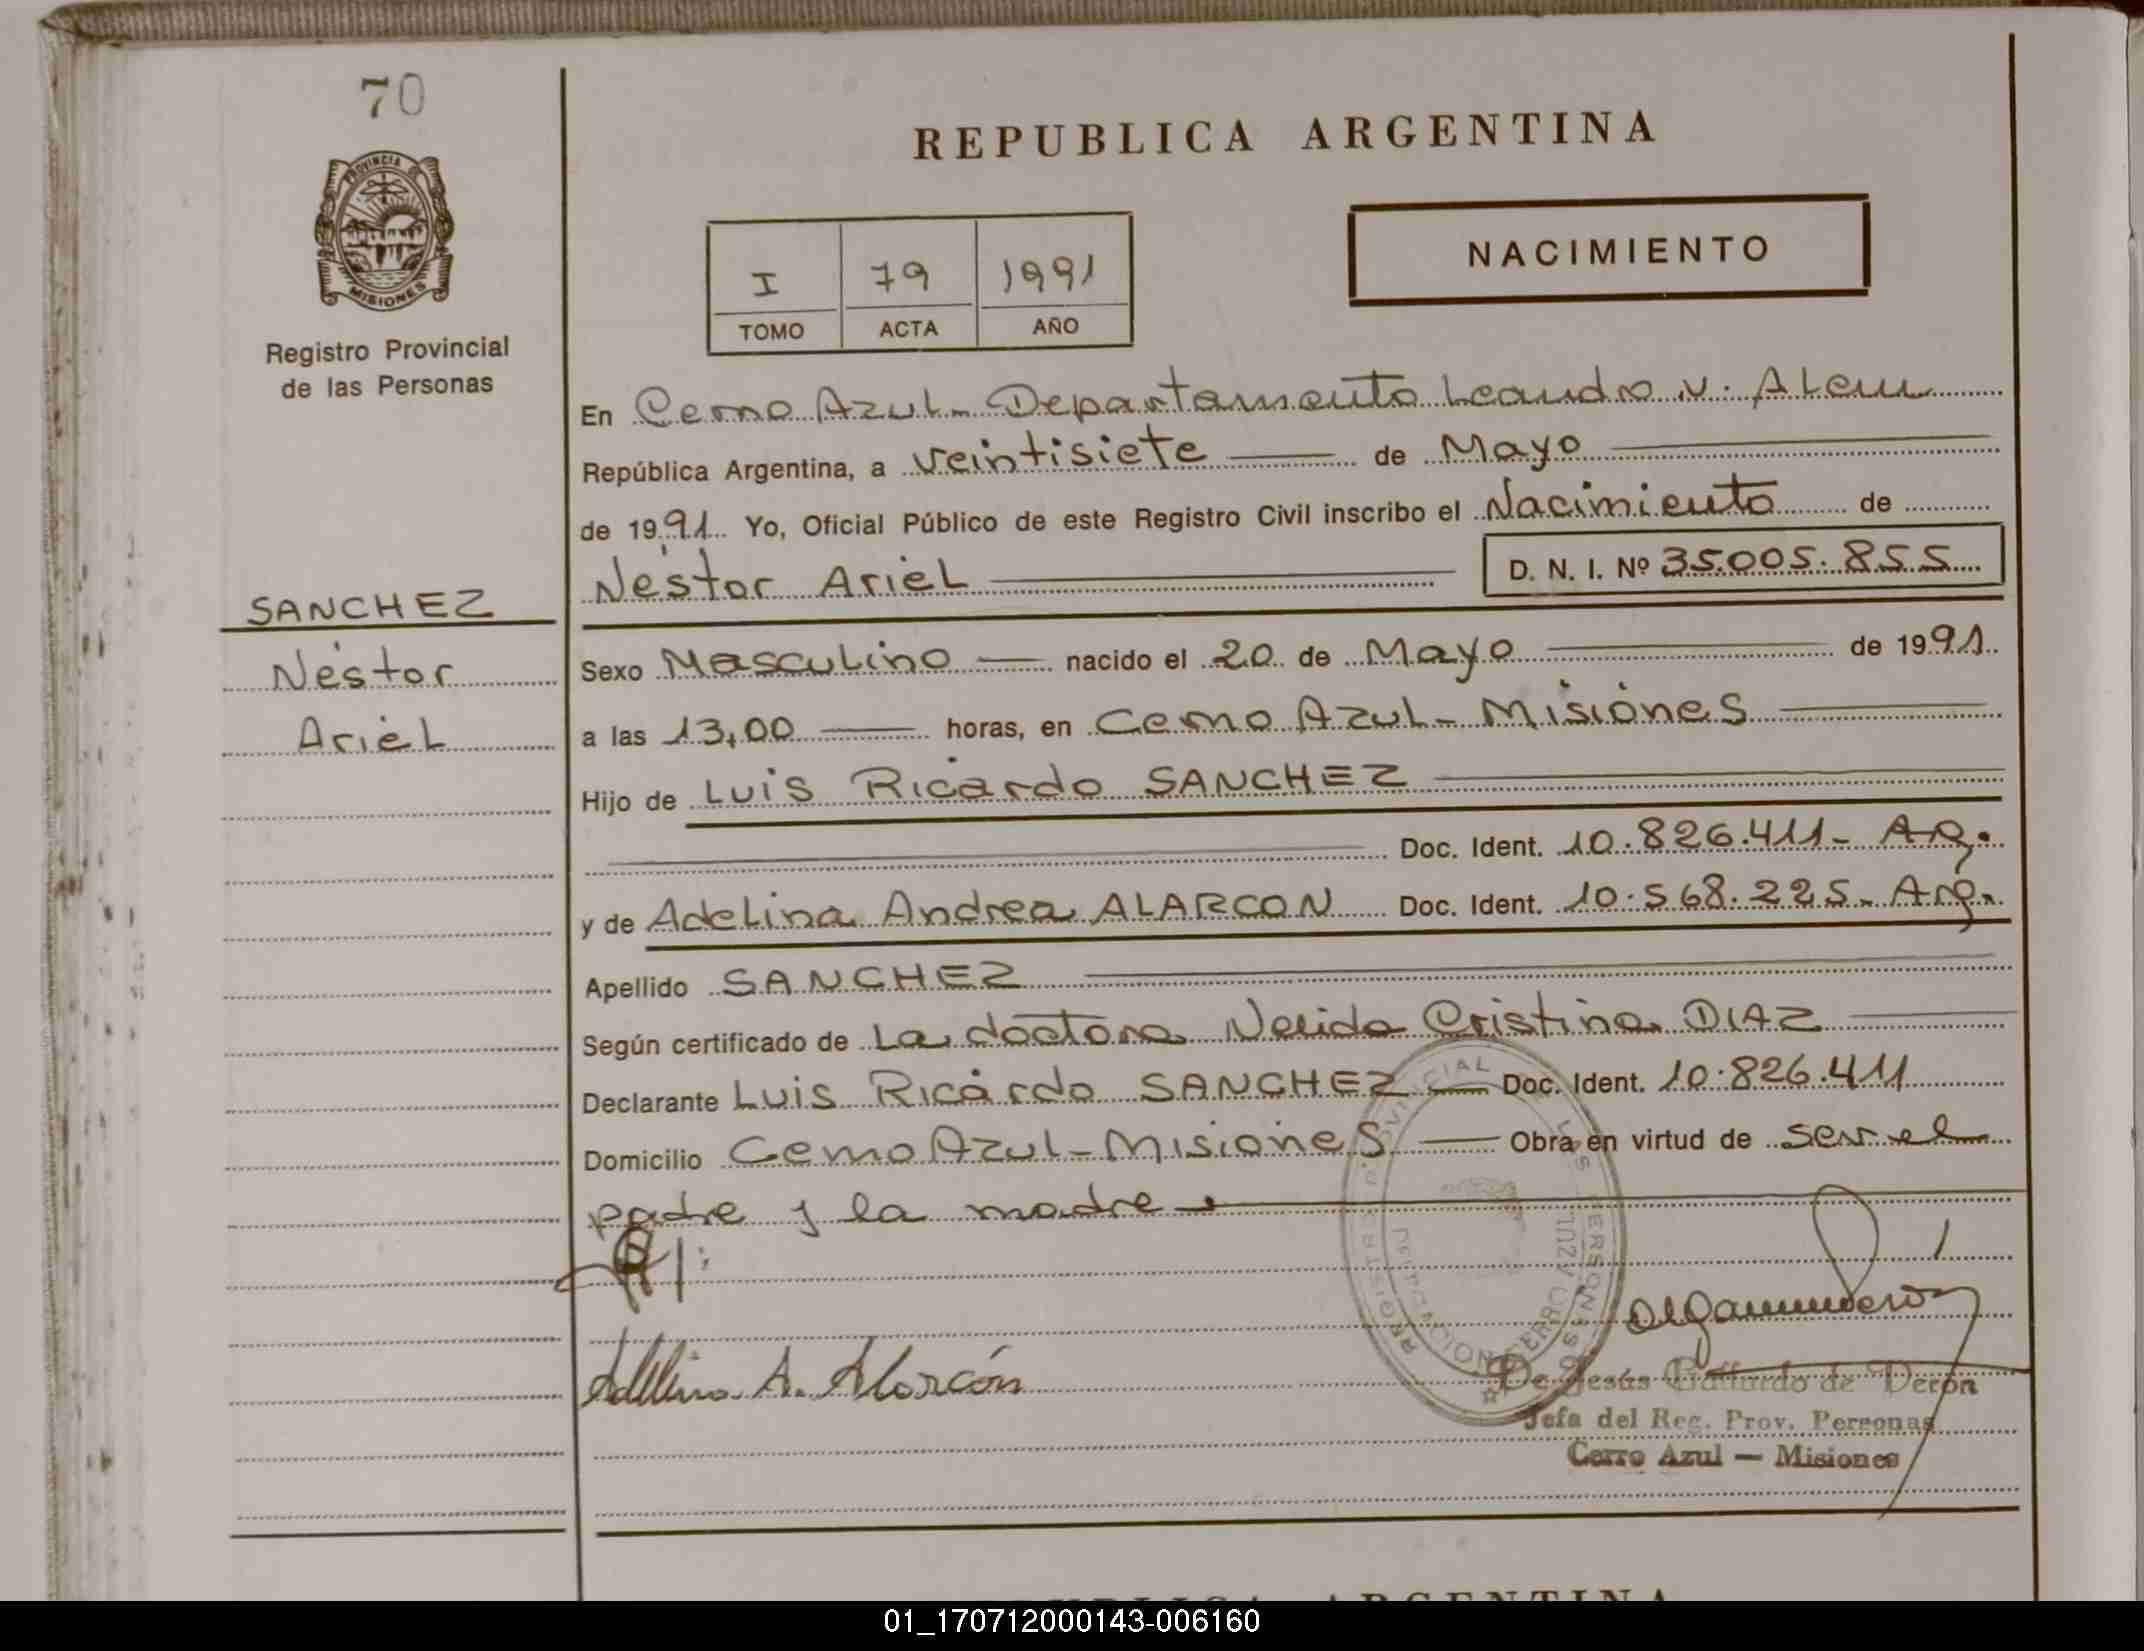 70
PROVINCIA DE
MISIONES
Registro Provincial
de las Personas
SANCHEZ
Néstor
Ariel
REPUBLICA ARGENTINA
NACIMIENTO
I 79 1991
TOMO ACTA AÑO
En Cerro Azul - Departamento Leandro N. Alem
República Argentina, a veintisiete de Mayo
de 1991 Yo, Oficial Público de este Registro Civil inscribo el Nacimiento de
Néstor Ariel D. N. I. Nº 35.005.855
Sexo Masculino nacido el 20 de Mayo de 1991
a las 13,00 horas, en Cerro Azul - Misiones
Hijo de Luis Ricardo SANCHEZ
Doc. Ident. 10.826.411 - Arg.
y de Adelina Andrea ALARCON Doc. Ident. 10.568.225 - Arg.
Apellido SANCHEZ
Según certificado de La doctora Nelida Cristina DIAZ
Declarante Luis Ricardo SANCHEZ Doc. Ident. 10.826.411
Domicilio Cerro Azul - Misiones Obra en virtud de ser el
padre y la madre
Adelina A. Alarcón
De Jesús Gallardo de Verón
Jefa del Reg. Prov. Personas
Cerro Azul — Misiones
REPUBLICA ARGENTINA
01_170712000143-006160